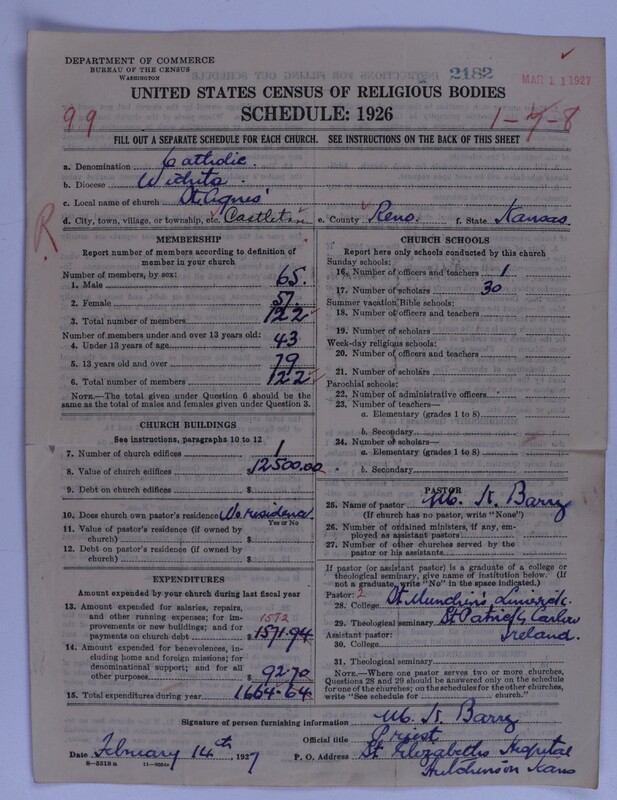 DEPARTMENT OF COMMERCE
BUREAU OF THE CENSUS
WASHINGTON
2182
MAR 11 1927
UNITED STATES CENSUS OF RELIGIOUS BODIES
SCHEDULE: 1926
99
1-4-8
FILL OUT A SEPARATE SCHEDULE FOR EACH CHURCH. SEE INSTRUCTIONS ON THE BACK OF THIS SHEET
a. Denomination Catholic.
b. Diocese Wichita.
c. Local name of church St. Agnes'
d. City, town, village, or township, etc. Castleton e. County Reno. f. State Kansas.
R
MEMBERSHIP
Report number of members according to definition of
member in your church
Number of members, by sex:
1. Male 65.
2. Female 57.
3. Total number of members 122
Number of members under and over 13 years old:
4. Under 13 years of age 43
5. 13 years old and over 79
6. Total number of members 122
NOTE.—The total given under Question 6 should be the
same as the total of males and females given under Question 3.
CHURCH BUILDINGS
See instructions, paragraphs 10 to 12
7. Number of church edifices 1
8. Value of church edifices $12500.00
9. Debt on church edifices $
10. Does church own pastor's residence? No residence.
Yes or No
11. Value of pastor's residence (if owned by
church) $
12. Debt on pastor's residence (if owned by
church) $
EXPENDITURES
Amount expended by your church during last fiscal year
13. Amount expended for salaries, repairs,
and other running expenses; for im-
provements or new buildings; and for
payments on church debt $ 1572 1571.94
14. Amount expended for benevolences, in-
cluding home and foreign missions; for
denominational support; and for all
other purposes $ 92.70
15. Total expenditures during year 1664.64
CHURCH SCHOOLS
Report here only schools conducted by this church
Sunday schools:
16. Number of officers and teachers 1
17. Number of scholars 30
Summer vacation Bible schools:
18. Number of officers and teachers
19. Number of scholars
Week-day religious schools:
20. Number of officers and teachers
21. Number of scholars
Parochial schools:
22. Number of administrative officers
23. Number of teachers—
a. Elementary (grades 1 to 8)
b. Secondary
24. Number of scholars—
a. Elementary (grades 1 to 8)
b. Secondary
PASTOR
25. Name of pastor M. St. Barry
(If church has no pastor, write "None")
26. Number of ordained ministers, if any, em-
ployed as assistant pastors
27. Number of other churches served by the
pastor or his assistants
If pastor (or assistant pastor) is a graduate of a college or
theological seminary, give name of institution below. (If
not a graduate, write "No" in the space indicated.)
Pastor: 2
28. College St. Munchin's Limerick.
29. Theological seminary St Patrick's Carlow
Assistant pastor: Ireland.
30. College
31. Theological seminary
NOTE.—Where one pastor serves two or more churches,
Questions 28 and 29 should be answered only on the schedule
for one of the churches; on the schedules for the other churches,
write "See schedule for church."
Signature of person furnishing information M. St. Barry
Official title Priest
Date February 14th, 1927 P. O. Address St Elizabeths Hospital
Hutchinson Kans
8-5318a